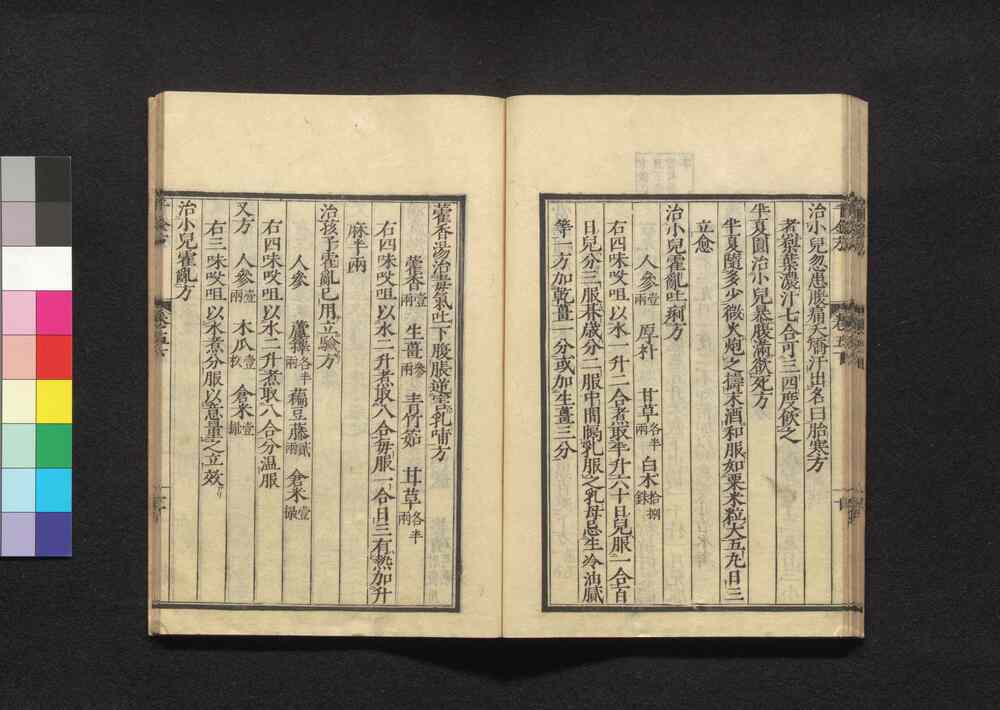 治小兒忽患腹痛夭矯汗出名曰胎寒方
煑梨葉濃汁七合可三四度飲之
半夏圓治小兒暴腹滿欲死方
半夏隨多少微火炮之擣末酒和服如粟米粒大五丸日三
立愈
治小兒霍亂吐痢方
人參壹兩 厚朴 甘草各半兩 白朮拾捌銖
右四味㕮咀以水一升二合煑取半升六十日兒服一合百
日兒分三服朞歲分二服中間隔乳服之乳母忌生冷油膩
等一方加乾薑一分或加生薑三分
藿香湯治毒氣吐下腹脹逆害乳哺方
藿香壹兩 生薑參兩 青竹茹 甘草各半兩
右四味㕮咀以水二升煑取八合每服一合日三有熱加升
麻半兩
治孩子霍亂已用立驗方
人參 蘆籜各半兩 藊豆藤貳兩 倉米壹撮
右四味㕮咀以水二升煑取八合分溫服
又方 人參壹兩 木瓜壹枚 倉米壹撮
右三味㕮咀以水煑分服以意量之立效
治小兒霍亂方